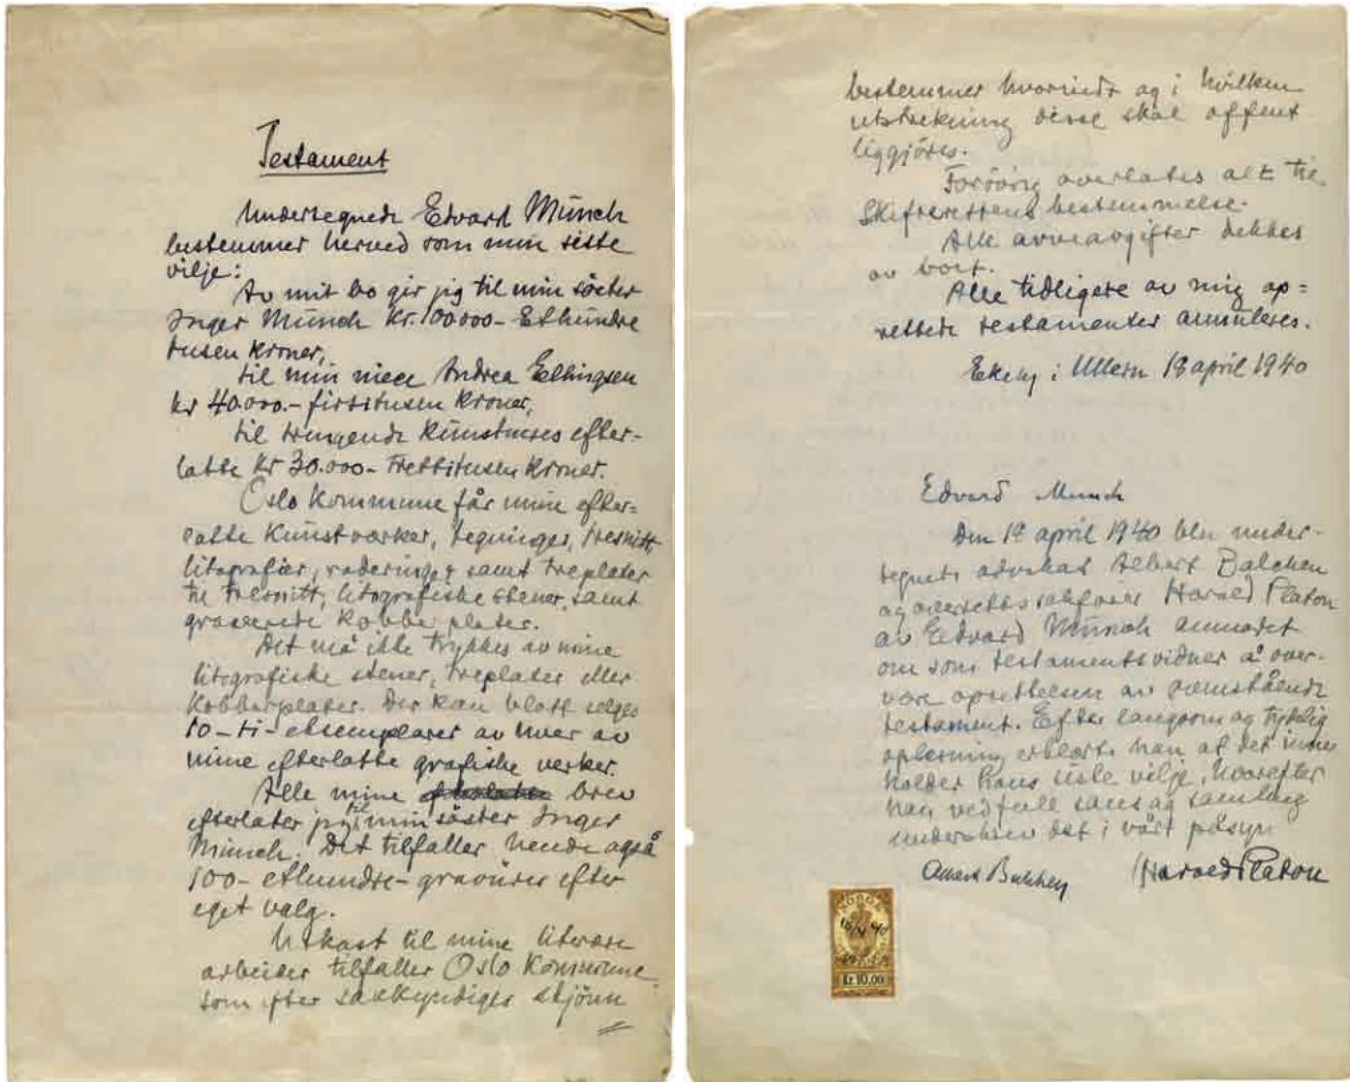 Testament
Undertegnede Edvard Münch
bestemmer herved som min siste
vilje:
Av mit bo gir jeg til min söster
Inger Münch Kr. 100000- Ethundre
tusen kroner,
til min niece Andrea Ellingsen
kr 40000.- firtitusen kroner,
til trengende kunstneres efter-
latte kr 30.000- Trettitusen kroner.
Oslo kommune får mine efter=
latte kunstværker, tegninger, tresnitt,
litografier, raderinger samt treplater
til tresnitt, litografiske stener, samt
graverete kobberplater.
Det må ikke trykkes av mine
litografiske stener, treplater eller
kobberplater. Der kan blott selges
10-ti-eksemplarer av hver av
mine efterlatte grafiske verker.
Alle mine brev
efterlater jeg til min söster Inger
Münch. Det tilfaller hende også
100- ethundre- gravürer efter
eget valg.
Utkast til mine literære
arbeider tilfaller Oslo Kommune
som efter sakkyndiges skjönn
bestemmer hvorvidt og i hvilken
utstrekning disse skal offent
liggjöres.
Forövrig overlates alt til
Skifterettens bestemmelse.
Alle arveavgifter dekkes
av boet.
Alle tidligere av mig op=
rettede testamenter annuleres.
Ekely i Ullern 18 april 1940
Edvard Munch
Den 18 april 1940 blev under-
tegnete advokat Albert Balchen
og overrettssakförer Harald Platon
av Edvard Münch anmodet
om som testamentsvidner å over-
være opsettelsen av foranstående
testament. Efter langsom og tydelig
oplesning erklærte han at det inne
holder hans siste vilje, hvorefter
han ved full sans og samling
underskrev det i vårt påsyn
Albert Balchen Harald Platon
NORGE
Kr 10,00